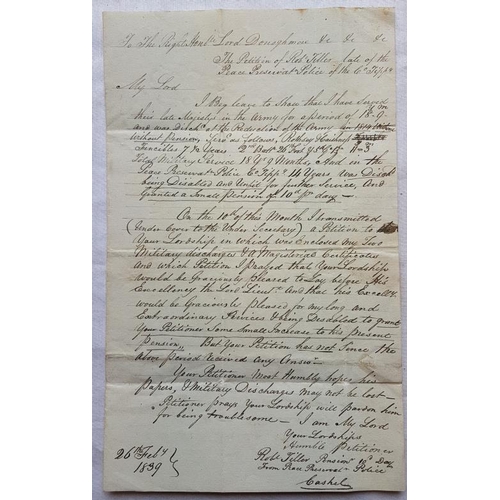 To The Right Honble Lord Donoghmore &c &c &c
The Petition of Robt Tiller, late of the
Peace Preservatn Police of the Co Tippy
My Lord
I Beg leave to State that I have Served
their late Majesty in the Army for a period of 18-9
and was Dischd at the Reduction of the Army in 1819
without Pension,
Fencibles 7 Years 2nd Battn 26th Foot
Total Military Service 18 Ys 9 Months, And in the
Peace Preservatn Police Co Tippy 14 Years was Dischd
being Disabled and Unfit for further Service, And
Granted a Small Pension of 10d Pr day-
On the 10th of this Month I transmitted
(Under Cover to the Under Secretary) a Petition to
Your Lordship in which was Enclosed My Two
Military discharges & Magisterial Certificates
And which Petition I prayed that Your Lordship
would be Graciously pleased to Lay before His
Excellency the Lord Lieutt And that his Excelly
would be Graciously pleased for my long and
Extraordinary Services & being Disabled to grant
Your Petitioner Some Small Increase to his present
Pension, But Your Petition has not Since the
above period received any Answr
Your Petitioner Most Humbly hopes his
Papers, & Military Discharges may not be lost-
Petitioner prays Your Lordship will pardon him
for being troublesome - I am My Lord
Your Lordships
Humble Petitioner
Robt Tiller Pensionr 10d Day
From Peace Preservatn Police
Cashel
26th Feby
1839